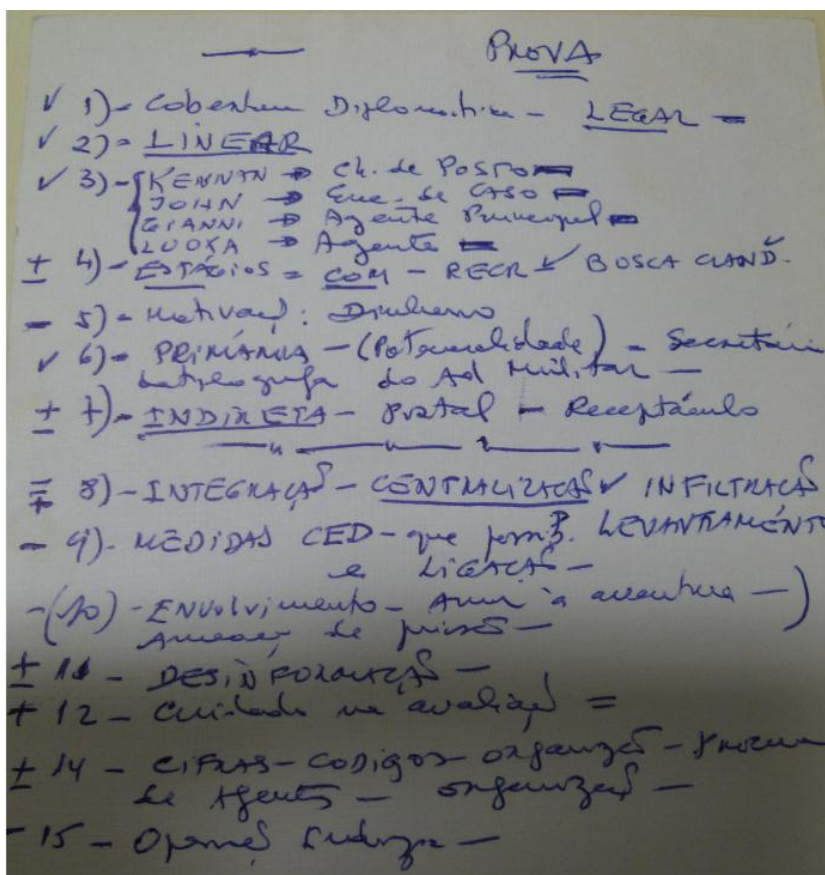 PROVA
✓ 1)- Cobertura Diplomática - LEGAL -
✓ 2)- LINEAR
✓ 3)- KENNAN → Ch. de POSTO
JOHN → Enc. de CASO
GIANNI → Agente Principal
LUOKA → Agente
± 4)- ESTÁGIOS = COM - RECR ✓ BUSCA CLAND.
- 5)- Motivaç: Dinheiro
✓ 6)- PRIMÁRIA - (Potencialidade) - Secretária
datilógrafa do Ad Militar -
± 7)- INDIRETA - Postal - Receptáculo
8)- INTEGRAÇÃO - CENTRALIZAÇÃO ✓ INFILTRAÇÃO
- 9)- MEDIDAS CED - que LEVANTAMENTO
e LIGAÇÃO -
-(10)- ENVOLVIMENTO - Amor à aventura -)
Ameaça de prisão -
± 11 - DESINFORMAÇÃO -
+ 12 - Cuidado na avaliaçã =
± 14 - CIFRAS - CODIGOS - organizaçã -
de Agentes - organizaçã -
- 15 -